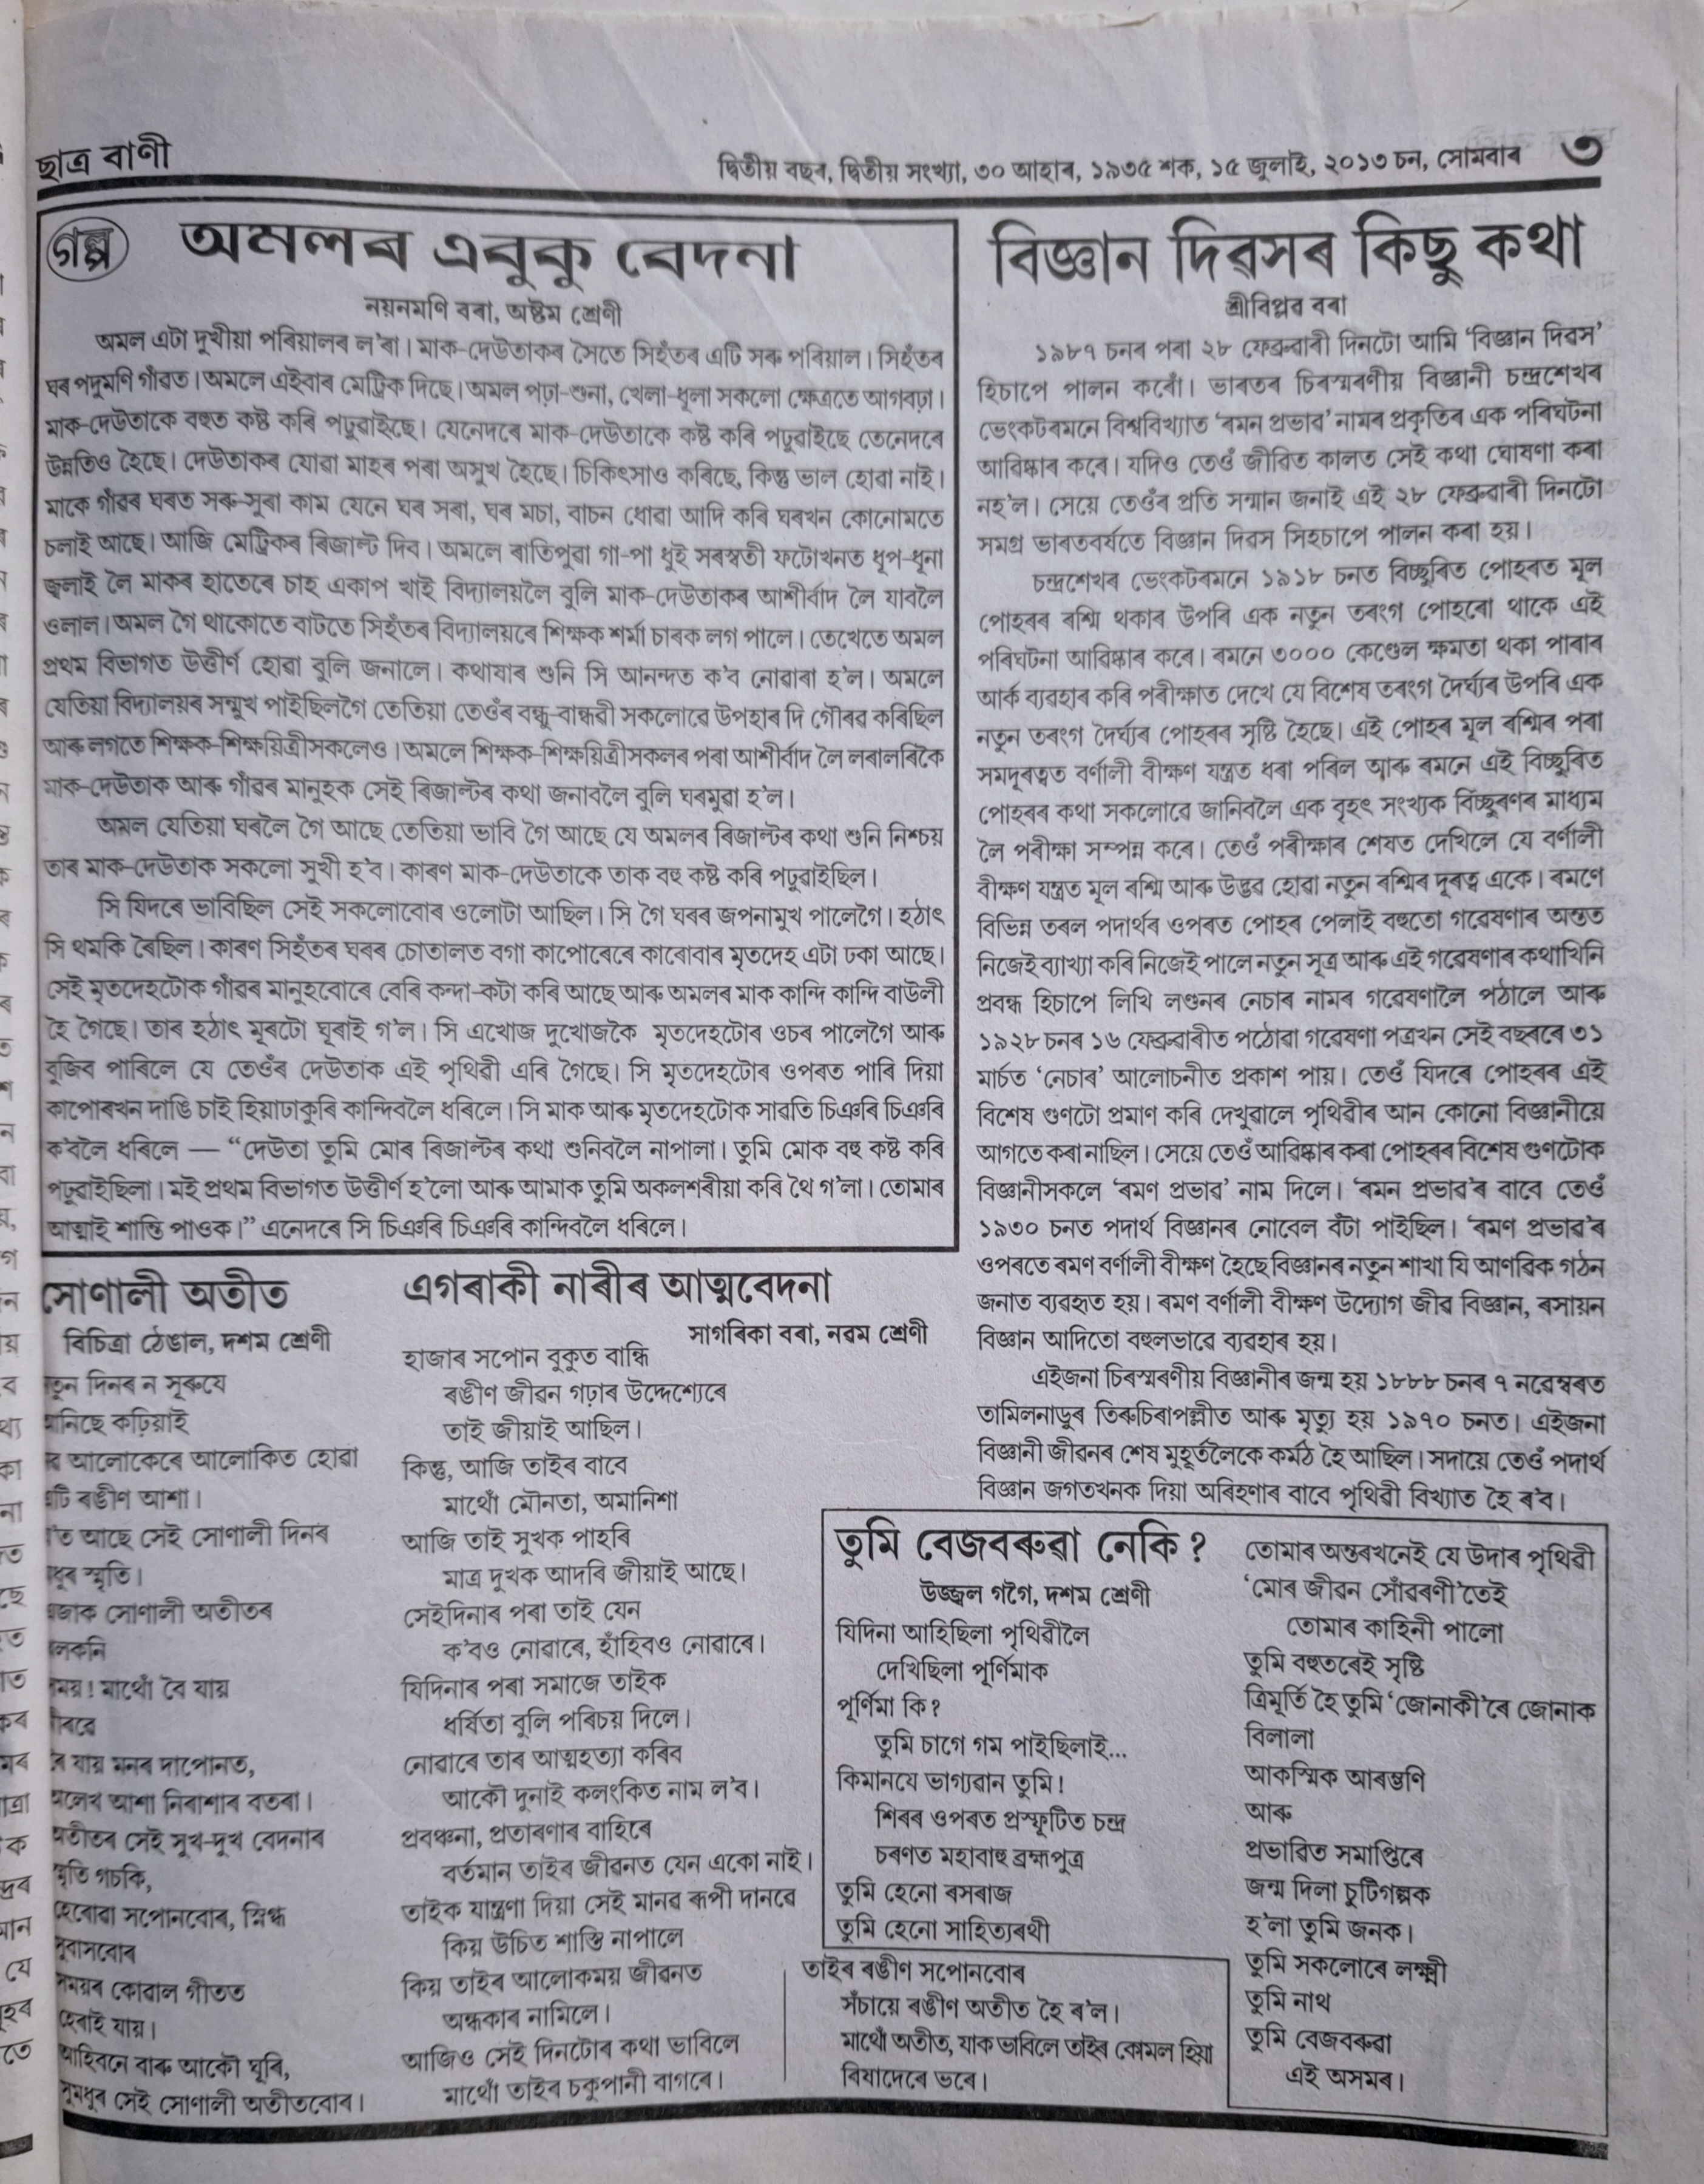 ছাত্ৰ বাণী
দ্বিতীয় বছৰ, দ্বিতীয় সংখ্যা, ৩০ আহাৰ, ১৯৩৫ শক, ১৫ জুলাই, ২০১৩ চন, সোমবাৰ
৩
গল্প
অমলৰ এবুকু বেদনা
নয়নমণি বৰা, অষ্টম শ্ৰেণী
অমল এটা দুখীয়া পৰিয়ালৰ ল'ৰা। মাক-দেউতাকৰ সৈতে সিহঁতৰ এটি সৰু পৰিয়াল। সিহঁতৰ
ঘৰ পদুমণি গাঁৱত। অমলে এইবাৰ মেট্ৰিক দিছে। অমল পঢ়া-শুনা, খেলা-ধূলা সকলো ক্ষেত্ৰতে আগবঢ়া।
মাক-দেউতাকে বহুত কষ্ট কৰি পঢ়ুৱাইছে। যেনেদৰে মাক-দেউতাকে কষ্ট কৰি পঢ়ুৱাইছে তেনেদৰে
উন্নতিও হৈছে। দেউতাকৰ যোৱা মাহৰ পৰা অসুখ হৈছে। চিকিৎসাও কৰিছে, কিন্তু ভাল হোৱা নাই।
মাকে গাঁৱৰ ঘৰত সৰু-সুৰা কাম যেনে ঘৰ সৰা, ঘৰ মচা, বাচন ধোৱা আদি কৰি ঘৰখন কোনোমতে
চলাই আছে। আজি মেট্ৰিকৰ ৰিজাল্ট দিব। অমলে ৰাতিপুৱা গা-পা ধুই সৰস্বতী ফটোখনত ধূপ-ধূনা
জ্বলাই লৈ মাকৰ হাতেৰে চাহ একাপ খাই বিদ্যালয়লৈ বুলি মাক-দেউতাকৰ আশীৰ্বাদ লৈ যাবলৈ
ওলাল। অমল গৈ থাকোতে বাটতে সিহঁতৰ বিদ্যালয়ৰে শিক্ষক শৰ্মা চাৰক লগ পালে। তেখেতে অমল
প্ৰথম বিভাগত উত্তীৰ্ণ হোৱা বুলি জনালে। কথাষাৰ শুনি সি আনন্দত ক'ব নোৱাৰা হ'ল। অমলে
যেতিয়া বিদ্যালয়ৰ সন্মুখ পাইছিলগৈ তেতিয়া তেওঁৰ বন্ধু-বান্ধৱী সকলোৱে উপহাৰ দি গৌৰৱ কৰিছিল
আৰু লগতে শিক্ষক-শিক্ষয়িত্ৰীসকলেও। অমলে শিক্ষক-শিক্ষয়িত্ৰীসকলৰ পৰা আশীৰ্বাদ লৈ লৰালৰিকৈ
মাক-দেউতাক আৰু গাঁৱৰ মানুহক সেই ৰিজাল্টৰ কথা জনাবলৈ বুলি ঘৰমুৱা হ'ল।
অমল যেতিয়া ঘৰলৈ গৈ আছে তেতিয়া ভাবি গৈ আছে যে অমলৰ ৰিজাল্টৰ কথা শুনি নিশ্চয়
তাৰ মাক-দেউতাক সকলো সুখী হ'ব। কাৰণ মাক-দেউতাকে তাক বহু কষ্ট কৰি পঢ়ুৱাইছিল।
সি যিদৰে ভাবিছিল সেই সকলোবোৰ ওলোটা আছিল। সি গৈ ঘৰৰ জপনামুখ পালেগৈ। হঠাৎ
সি থমকি ৰৈছিল। কাৰণ সিহঁতৰ ঘৰৰ চোতালত বগা কাপোৰেৰে কাৰোবাৰ মৃতদেহ এটা ঢকা আছে।
সেই মৃতদেহটোক গাঁৱৰ মানুহবোৰে বেৰি কন্দা-কটা কৰি আছে আৰু অমলৰ মাক কান্দি কান্দি বাউলী
হৈ গৈছে। তাৰ হঠাৎ মূৰটো ঘূৰাই গ'ল। সি এখোজ দুখোজকৈ মৃতদেহটোৰ ওচৰ পালেগৈ আৰু
বুজিব পাৰিলে যে তেওঁৰ দেউতাক এই পৃথিৱী এৰি গৈছে। সি মৃতদেহটোৰ ওপৰত পাৰি দিয়া
কাপোৰখন দাঙি চাই হিয়াঢাকুৰি কান্দিবলৈ ধৰিলে। সি মাক আৰু মৃতদেহটোক সাৱতি চিঞৰি চিঞৰি
ক'বলৈ ধৰিলে — “দেউতা তুমি মোৰ ৰিজাল্টৰ কথা শুনিবলৈ নাপালা। তুমি মোক বহু কষ্ট কৰি
পঢ়ুৱাইছিলা। মই প্ৰথম বিভাগত উত্তীৰ্ণ হ'লো আৰু আমাক তুমি অকলশৰীয়া কৰি থৈ গ'লা। তোমাৰ
আত্মাই শান্তি পাওক।” এনেদৰে সি চিঞৰি চিঞৰি কান্দিবলৈ ধৰিলে।
বিজ্ঞান দিৱসৰ কিছু কথা
শ্ৰীবিপ্লৱ বৰা
১৯৮৭ চনৰ পৰা ২৮ ফেব্ৰুৱাৰী দিনটো আমি ‘বিজ্ঞান দিৱস’
হিচাপে পালন কৰোঁ। ভাৰতৰ চিৰস্মৰণীয় বিজ্ঞানী চন্দ্ৰশেখৰ
ভেংকটৰমনে বিশ্ববিখ্যাত ‘ৰমন প্ৰভাৱ’ নামৰ প্ৰকৃতিৰ এক পৰিঘটনা
আৱিষ্কাৰ কৰে। যদিও তেওঁ জীৱিত কালত সেই কথা ঘোষণা কৰা
নহ'ল। সেয়ে তেওঁৰ প্ৰতি সন্মান জনাই এই ২৮ ফেব্ৰুৱাৰী দিনটো
সমগ্ৰ ভাৰতবৰ্ষতে বিজ্ঞান দিৱস সিহচাপে পালন কৰা হয়।
চন্দ্ৰশেখৰ ভেংকটৰমনে ১৯১৮ চনত বিচ্ছুৰিত পোহৰত মূল
পোহৰৰ ৰশ্মি থকাৰ উপৰি এক নতুন তৰংগ পোহৰো থাকে এই
পৰিঘটনা আৱিষ্কাৰ কৰে। ৰমনে ৩০০০ কেণ্ডেল ক্ষমতা থকা পাৰাৰ
আৰ্ক ব্যৱহাৰ কৰি পৰীক্ষাত দেখে যে বিশেষ তৰংগ দৈৰ্ঘ্যৰ উপৰি এক
নতুন তৰংগ দৈৰ্ঘ্যৰ পোহৰৰ সৃষ্টি হৈছে। এই পোহৰ মূল ৰশ্মিৰ পৰা
সমদূৰত্বত বৰ্ণালী বীক্ষণ যন্ত্ৰত ধৰা পৰিল আৰু ৰমনে এই বিচ্ছুৰিত
পোহৰৰ কথা সকলোৱে জানিবলৈ এক বৃহৎ সংখ্যক বিচ্ছুৰণৰ মাধ্যম
লৈ পৰীক্ষা সম্পন্ন কৰে। তেওঁ পৰীক্ষাৰ শেষত দেখিলে যে বৰ্ণালী
বীক্ষণ যন্ত্ৰত মূল ৰশ্মি আৰু উদ্ভৱ হোৱা নতুন ৰশ্মিৰ দূৰত্ব একে। ৰমণে
বিভিন্ন তৰল পদাৰ্থৰ ওপৰত পোহৰ পেলাই বহুতো গৱেষণাৰ অন্তত
নিজেই ব্যাখ্যা কৰি নিজেই পালে নতুন সূত্ৰ আৰু এই গৱেষণাৰ কথাখিনি
প্ৰবন্ধ হিচাপে লিখি লণ্ডনৰ নেচাৰ নামৰ গৱেষণালৈ পঠালে আৰু
১৯২৮ চনৰ ১৬ ফেব্ৰুৱাৰীত পঠোৱা গৱেষণা পত্ৰখন সেই বছৰৰে ৩১
মাৰ্চত ‘নেচাৰ’ আলোচনীত প্ৰকাশ পায়। তেওঁ যিদৰে পোহৰৰ এই
বিশেষ গুণটো প্ৰমাণ কৰি দেখুৱালে পৃথিৱীৰ আন কোনো বিজ্ঞানীয়ে
আগতে কৰা নাছিল। সেয়ে তেওঁ আৱিষ্কাৰ কৰা পোহৰৰ বিশেষ গুণটোক
বিজ্ঞানীসকলে ‘ৰমণ প্ৰভাৱ’ নাম দিলে। ‘ৰমন প্ৰভাৱ’ৰ বাবে তেওঁ
১৯৩০ চনত পদাৰ্থ বিজ্ঞানৰ নোবেল বঁটা পাইছিল। ‘ৰমণ প্ৰভাৱ’ৰ
ওপৰতে ৰমণ বৰ্ণালী বীক্ষণ হৈছে বিজ্ঞানৰ নতুন শাখা যি আণৱিক গঠন
জনাত ব্যৱহৃত হয়। ৰমণ বৰ্ণালী বীক্ষণ উদ্যোগ জীৱ বিজ্ঞান, ৰসায়ন
বিজ্ঞান আদিতো বহুলভাৱে ব্যৱহাৰ হয়।
এইজনা চিৰস্মৰণীয় বিজ্ঞানীৰ জন্ম হয় ১৮৮৮ চনৰ ৭ নৱেম্বৰত
তামিলনাডুৰ তিৰুচিৰাপল্লীত আৰু মৃত্যু হয় ১৯৭০ চনত। এইজনা
বিজ্ঞানী জীৱনৰ শেষ মুহূৰ্তলৈকে কৰ্মঠ হৈ আছিল। সদায়ে তেওঁ পদাৰ্থ
বিজ্ঞান জগতখনক দিয়া অৰিহণাৰ বাবে পৃথিৱী বিখ্যাত হৈ ৰ'ব।
সোণালী অতীত
বিচিত্ৰা ঠেঙাল, দশম শ্ৰেণী
দিনৰ ন সূৰুযে
কঢ়িয়াই
আলোকেৰে আলোকিত হোৱা
ৰঙীণ আশা।
আছে সেই সোণালী দিনৰ
স্মৃতি।
সোণালী অতীতৰ
মাথোঁ বৈ যায়
যায় মনৰ দাপোনত,
আশা নিৰাশাৰ বতৰা।
অতীতৰ সেই সুখ-দুখ বেদনাৰ
গচকি,
হেৰোৱা সপোনবোৰ, স্নিগ্ধ
সুবাসবোৰ
সময়ৰ কোৱাল গীতত
হেৰাই যায়।
আহিবনে বাৰু আকৌ ঘূৰি,
সুমধুৰ সেই সোণালী অতীতবোৰ।
এগৰাকী নাৰীৰ আত্মবেদনা
সাগৰিকা বৰা, নৱম শ্ৰেণী
হাজাৰ সপোন বুকুত বান্ধি
ৰঙীণ জীৱন গঢ়াৰ উদ্দেশ্যেৰে
তাই জীয়াই আছিল।
কিন্তু, আজি তাইৰ বাবে
মাথোঁ মৌনতা, অমানিশা
আজি তাই সুখক পাহৰি
মাত্ৰ দুখক আদৰি জীয়াই আছে।
সেইদিনাৰ পৰা তাই যেন
ক'বও নোৱাৰে, হাঁহিবও নোৱাৰে।
যিদিনাৰ পৰা সমাজে তাইক
ধৰ্ষিতা বুলি পৰিচয় দিলে।
নোৱাৰে তাৰ আত্মহত্যা কৰিব
আকৌ দুনাই কলংকিত নাম ল'ব।
প্ৰবঞ্চনা, প্ৰতাৰণাৰ বাহিৰে
বৰ্তমান তাইৰ জীৱনত যেন একো নাই।
তাইক যান্ত্ৰণা দিয়া সেই মানৱ ৰূপী দানৱে
কিয় উচিত শাস্তি নাপালে
কিয় তাইৰ আলোকময় জীৱনত
অন্ধকাৰ নামিলে।
আজিও সেই দিনটোৰ কথা ভাবিলে
মাথোঁ তাইৰ চকুপানী বাগৰে।
তাইৰ ৰঙীণ সপোনবোৰ
সঁচায়ে ৰঙীণ অতীত হৈ ৰ'ল।
মাথোঁ অতীত, যাক ভাবিলে তাইৰ কোমল হিয়া
বিষাদেৰে ভৰে।
তুমি বেজবৰুৱা নেকি ?
উজ্জ্বল গগৈ, দশম শ্ৰেণী
যিদিনা আহিছিলা পৃথিৱীলৈ
দেখিছিলা পূৰ্ণিমাক
পূৰ্ণিমা কি ?
তুমি চাগে গম পাইছিলাই...
কিমানযে ভাগ্যৱান তুমি !
শিৰৰ ওপৰত প্ৰস্ফূটিত চন্দ্ৰ
চৰণত মহাবাহু ব্ৰহ্মপুত্ৰ
তুমি হেনো ৰসৰাজ
তুমি হেনো সাহিত্যৰথী
তোমাৰ অন্তৰখনেই যে উদাৰ পৃথিৱী
‘মোৰ জীৱন সোঁৱৰণী’তেই
তোমাৰ কাহিনী পালো
তুমি বহুতৰেই সৃষ্টি
ত্ৰিমূৰ্তি হৈ তুমি ‘জোনাকী’ৰে জোনাক
বিলালা
আকস্মিক আৰম্ভণি
আৰু
প্ৰভাৱিত সমাপ্তিৰে
জন্ম দিলা চুটিগল্পক
হ'লা তুমি জনক।
তুমি সকলোৰে লক্ষ্মী
তুমি নাথ
তুমি বেজবৰুৱা
এই অসমৰ।